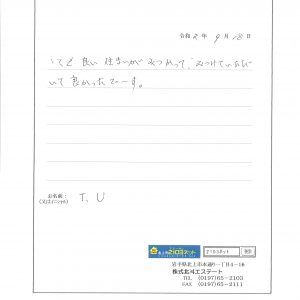 令和2年 9月18日
とても良い住まいがみつかって、みつけていただ
いて良かったでーす。
お名前:
(又はイニシャル)
T. U
2103ネット
2103ネット
検索
岩手県北上市本通り一丁目4-16
株式会社北斗エステート
TEL (0197)65-2103
FAX (0197)65-2111